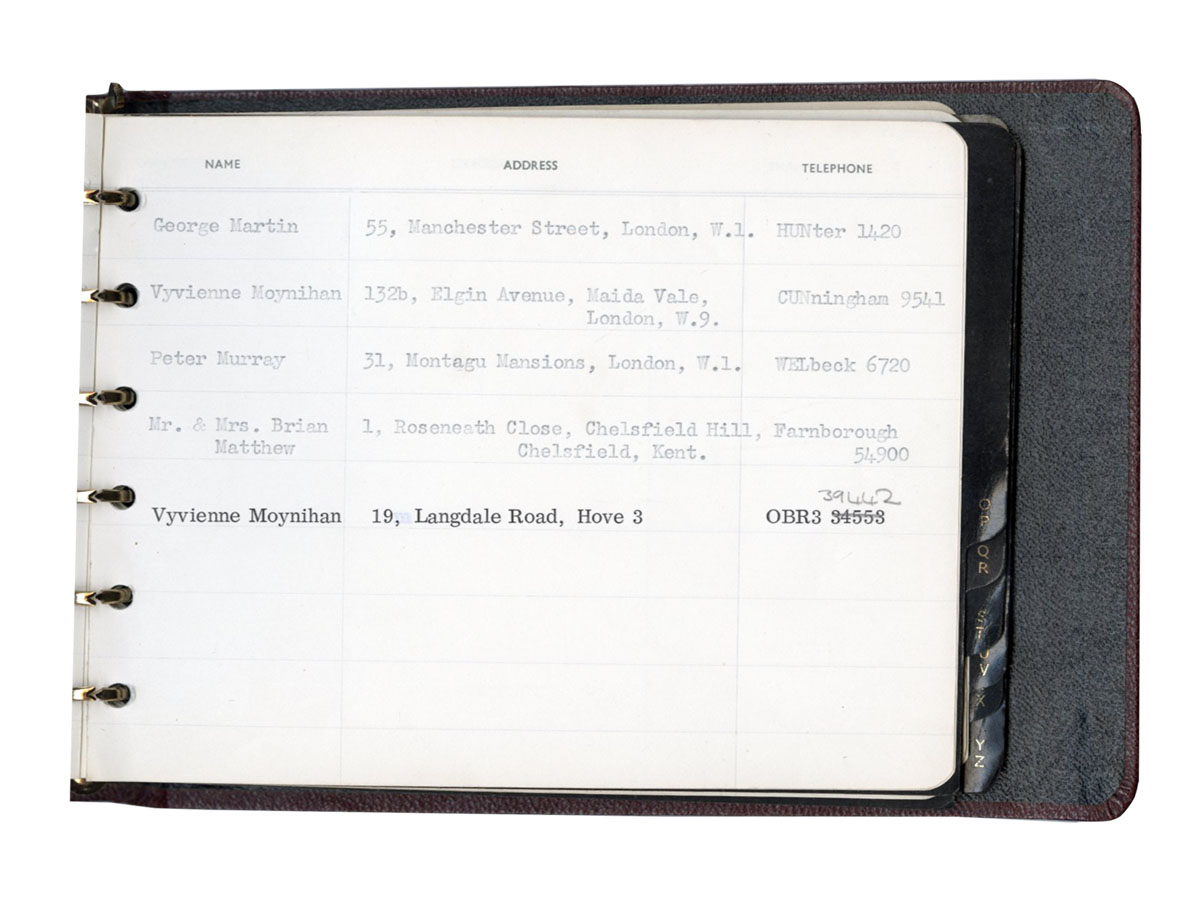 NAME ADDRESS TELEPHONE
George Martin 55, Manchester Street, London, W.1. HUNter 1420
Vyvienne Moynihan 132b, Elgin Avenue, Maida Vale, CUNningham 9541
London, W.9.
Peter Murray 31, Montagu Mansions, London, W.1. WELbeck 6720
Mr. & Mrs. Brian 1, Roseneath Close, Chelsfield Hill, Farnborough
Matthew Chelsfield, Kent. 54900
39442
Vyvienne Moynihan 19, Langdale Road, Hove 3 OBR3 34553
O
P
Q
R
S
T
U
V
X
Y
Z